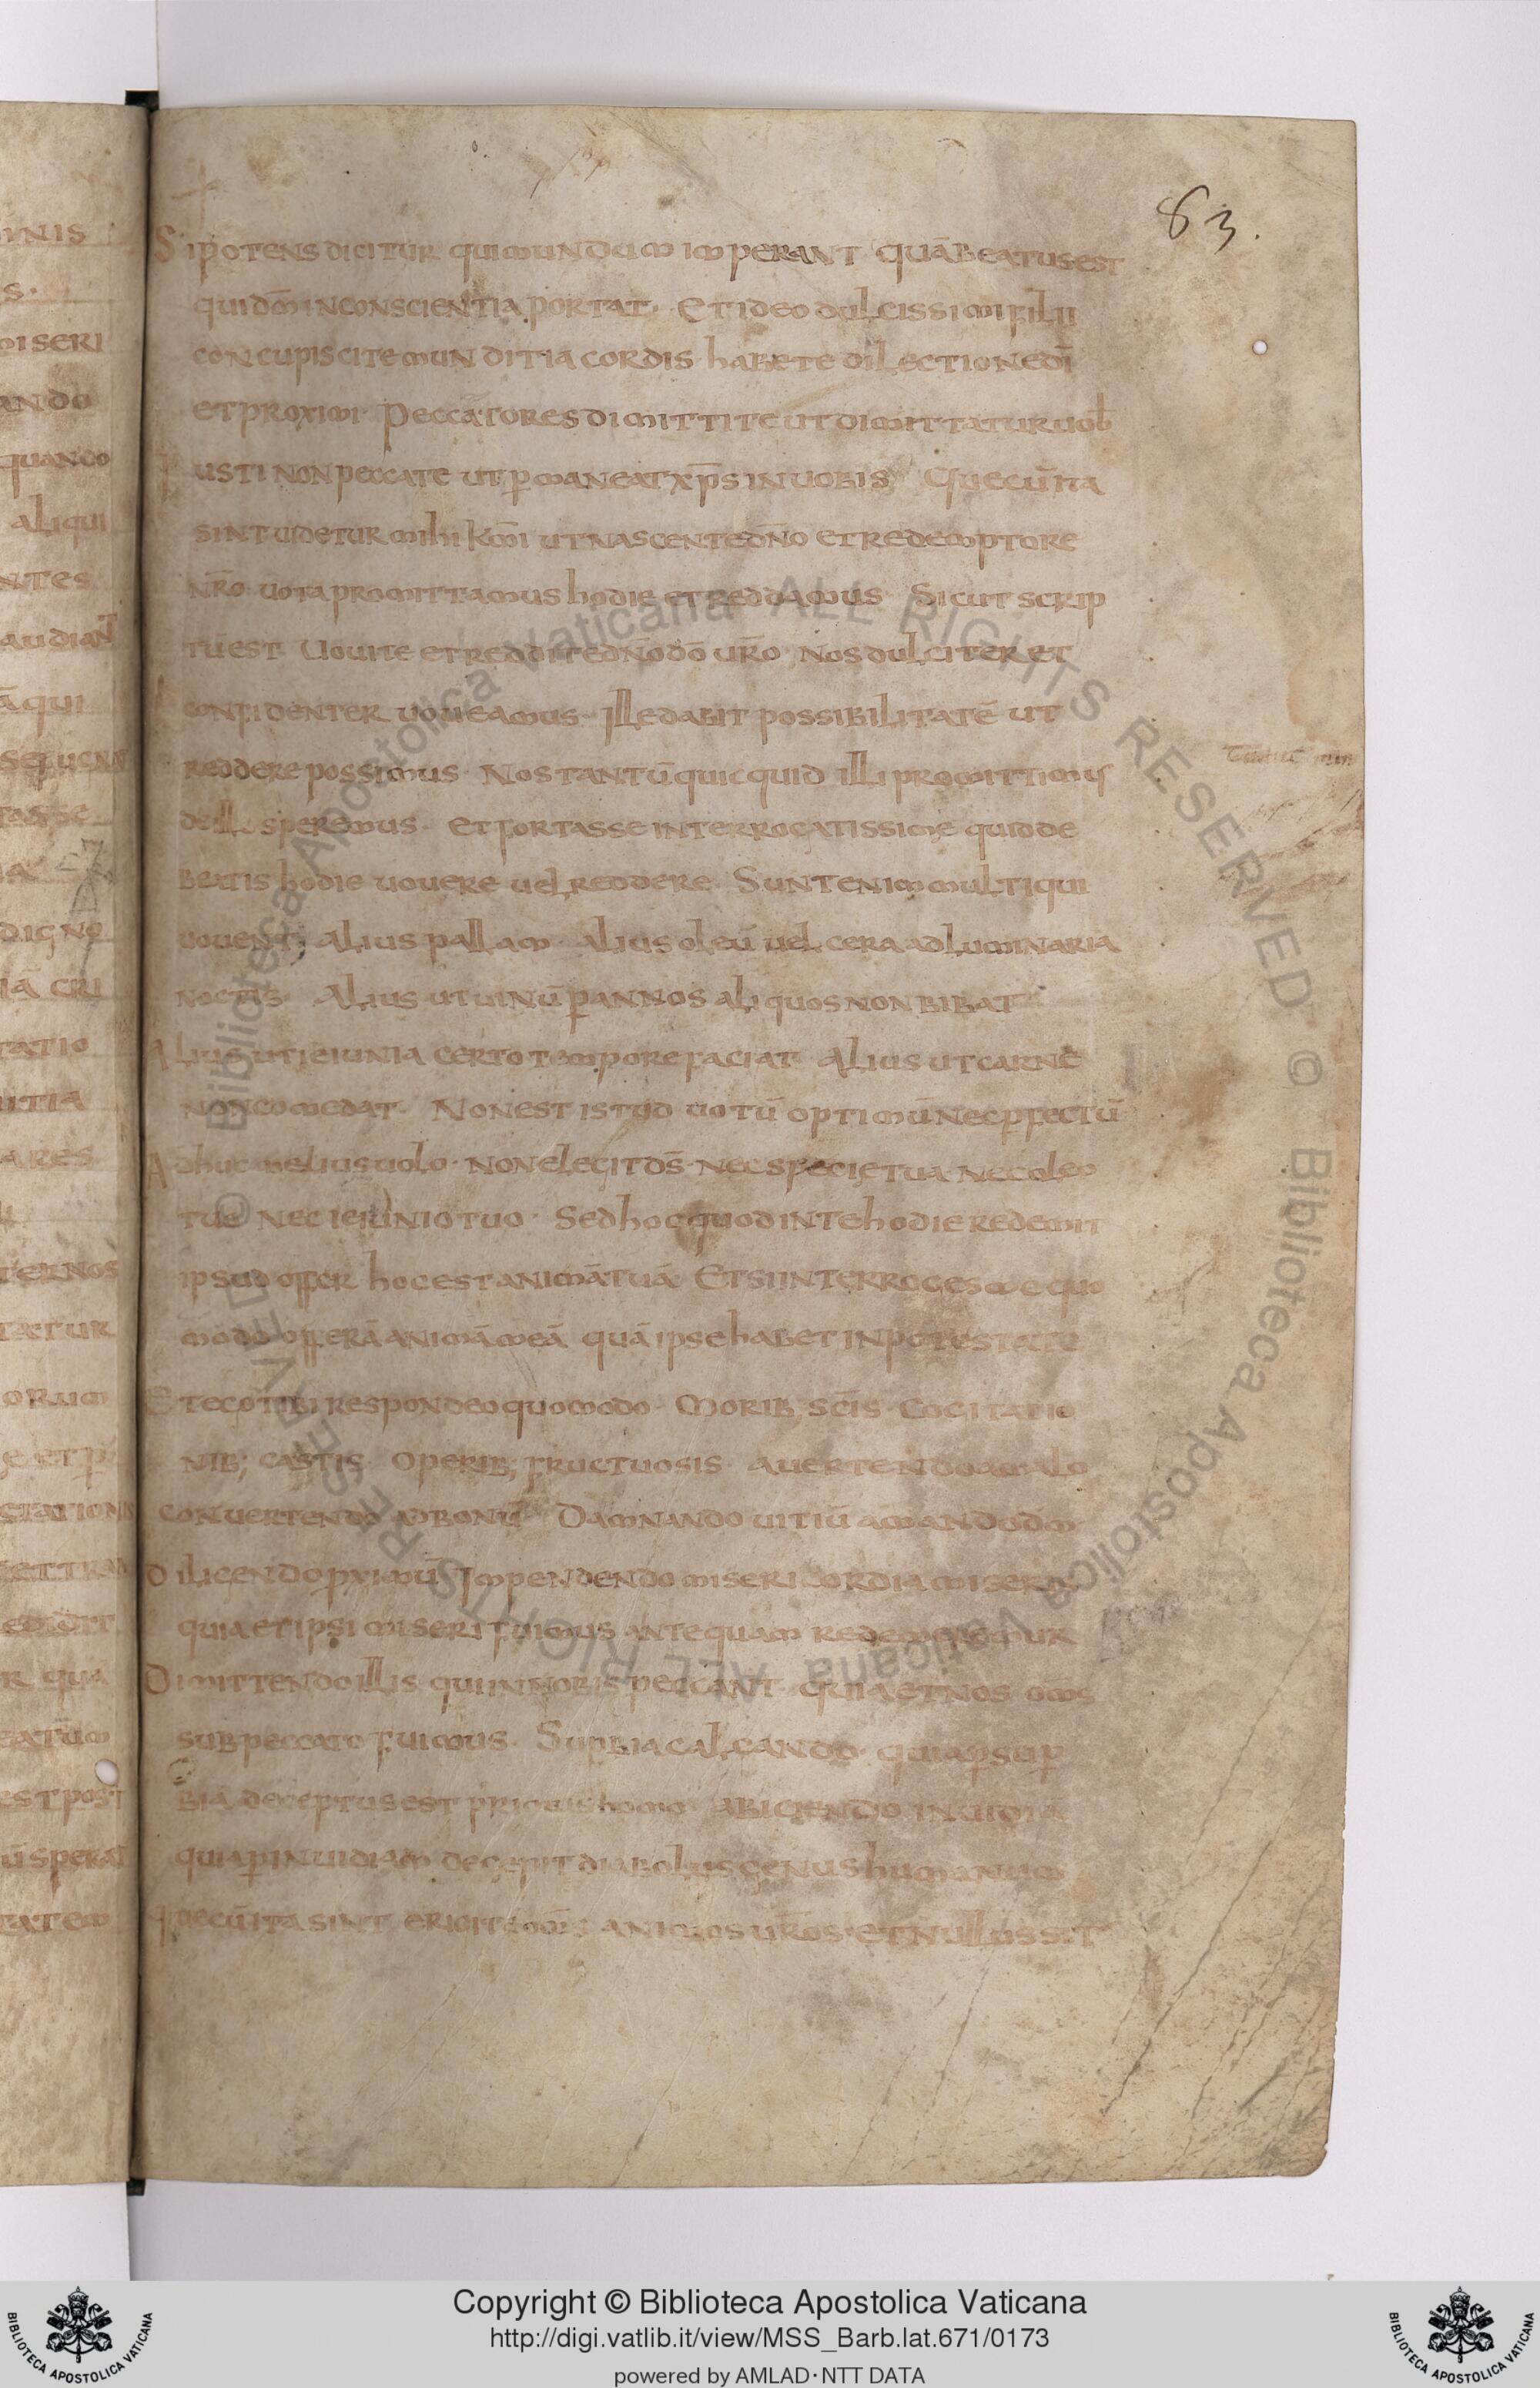 83.
Si potens dicitur qui mundum imperant quā beatus est
qui dm̄ in conscientia portat · Et ideo dulcissimi filii
concupiscite munditia cordis · habete dilectione dī
et proximi · Peccātores dimittite ut dimittatur uob̄
usti non peccate ut p̄maneat xp̄s in uobis Que cū ita
sint uidetur mihi km̄i ut nascente dn̄o et redemptore
nr̄o uota promittamus hodie et reddamus Sicut scrip
tū est Uouite et reddite dn̄o dō ur̄o Nos dulciter et
confidenter uoueamus · Ille dabit possibilitatē ut
reddere possimus · Nos tantū quicquid illi promittimus
de illo speremus · et fortasse interrogatis sime quid de
betis hodie uouere uel reddere · Sunt enim multi qui
uouent; alius pallam · alius oleū uel cera ad luminaria
noctis · Alius ut uinū p̄ annos aliquos non bibat
Alius ut ieiunia certo tempore faciat · Alius ut carnē
non comedat · Non est istud uotū optimū nec p̄fectū
Adhuc melius uolo · non elegit ds̄ · nec specie tua · nec oleo
tuo nec ieiunio tuo · Sed hoc quod in te hodie redemit
ipsud offer hoc est animā tuā Et si interroges me quo
modo offerā animā meā quā ipse habet in potestate
Et ego tibi respondeo quomodo · Morib; sc̄is · Cogitatio
nib; castis · Operib; fructuosis · auertendo a malo
conuertendo ad bonū Damnando uitiū amando dm̄
Diligendo pximū Impendendo misericordia miseris
quia et ipsi miseri fuimus antequam redemeremur
Dimittendo illis qui in nobis peccant quia et nos om̄s
sub peccato fuimus · Sup̄bia calcando · quia p̄ sup̄
bia deceptus est primus homo · abiciendo inuidia
quia p̄ inuidiam decepit diabolus genus humanum
Que cū ita sint erigite om̄s animos ur̄os · et nullus sit
Copyright © Biblioteca Apostolica Vaticana
http://digi.vatlib.it/view/MSS_Barb.lat.671/0173
powered by AMLAD·NTT DATA
BIBLIOTECA APOSTOLICA VATICANA
BIBLIOTECA APOSTOLICA VATICANA
© Biblioteca Apostolica Vaticana ALL RIGHTS RESERVED
© Biblioteca Apostolica Vaticana ALL RIGHTS RESERVED